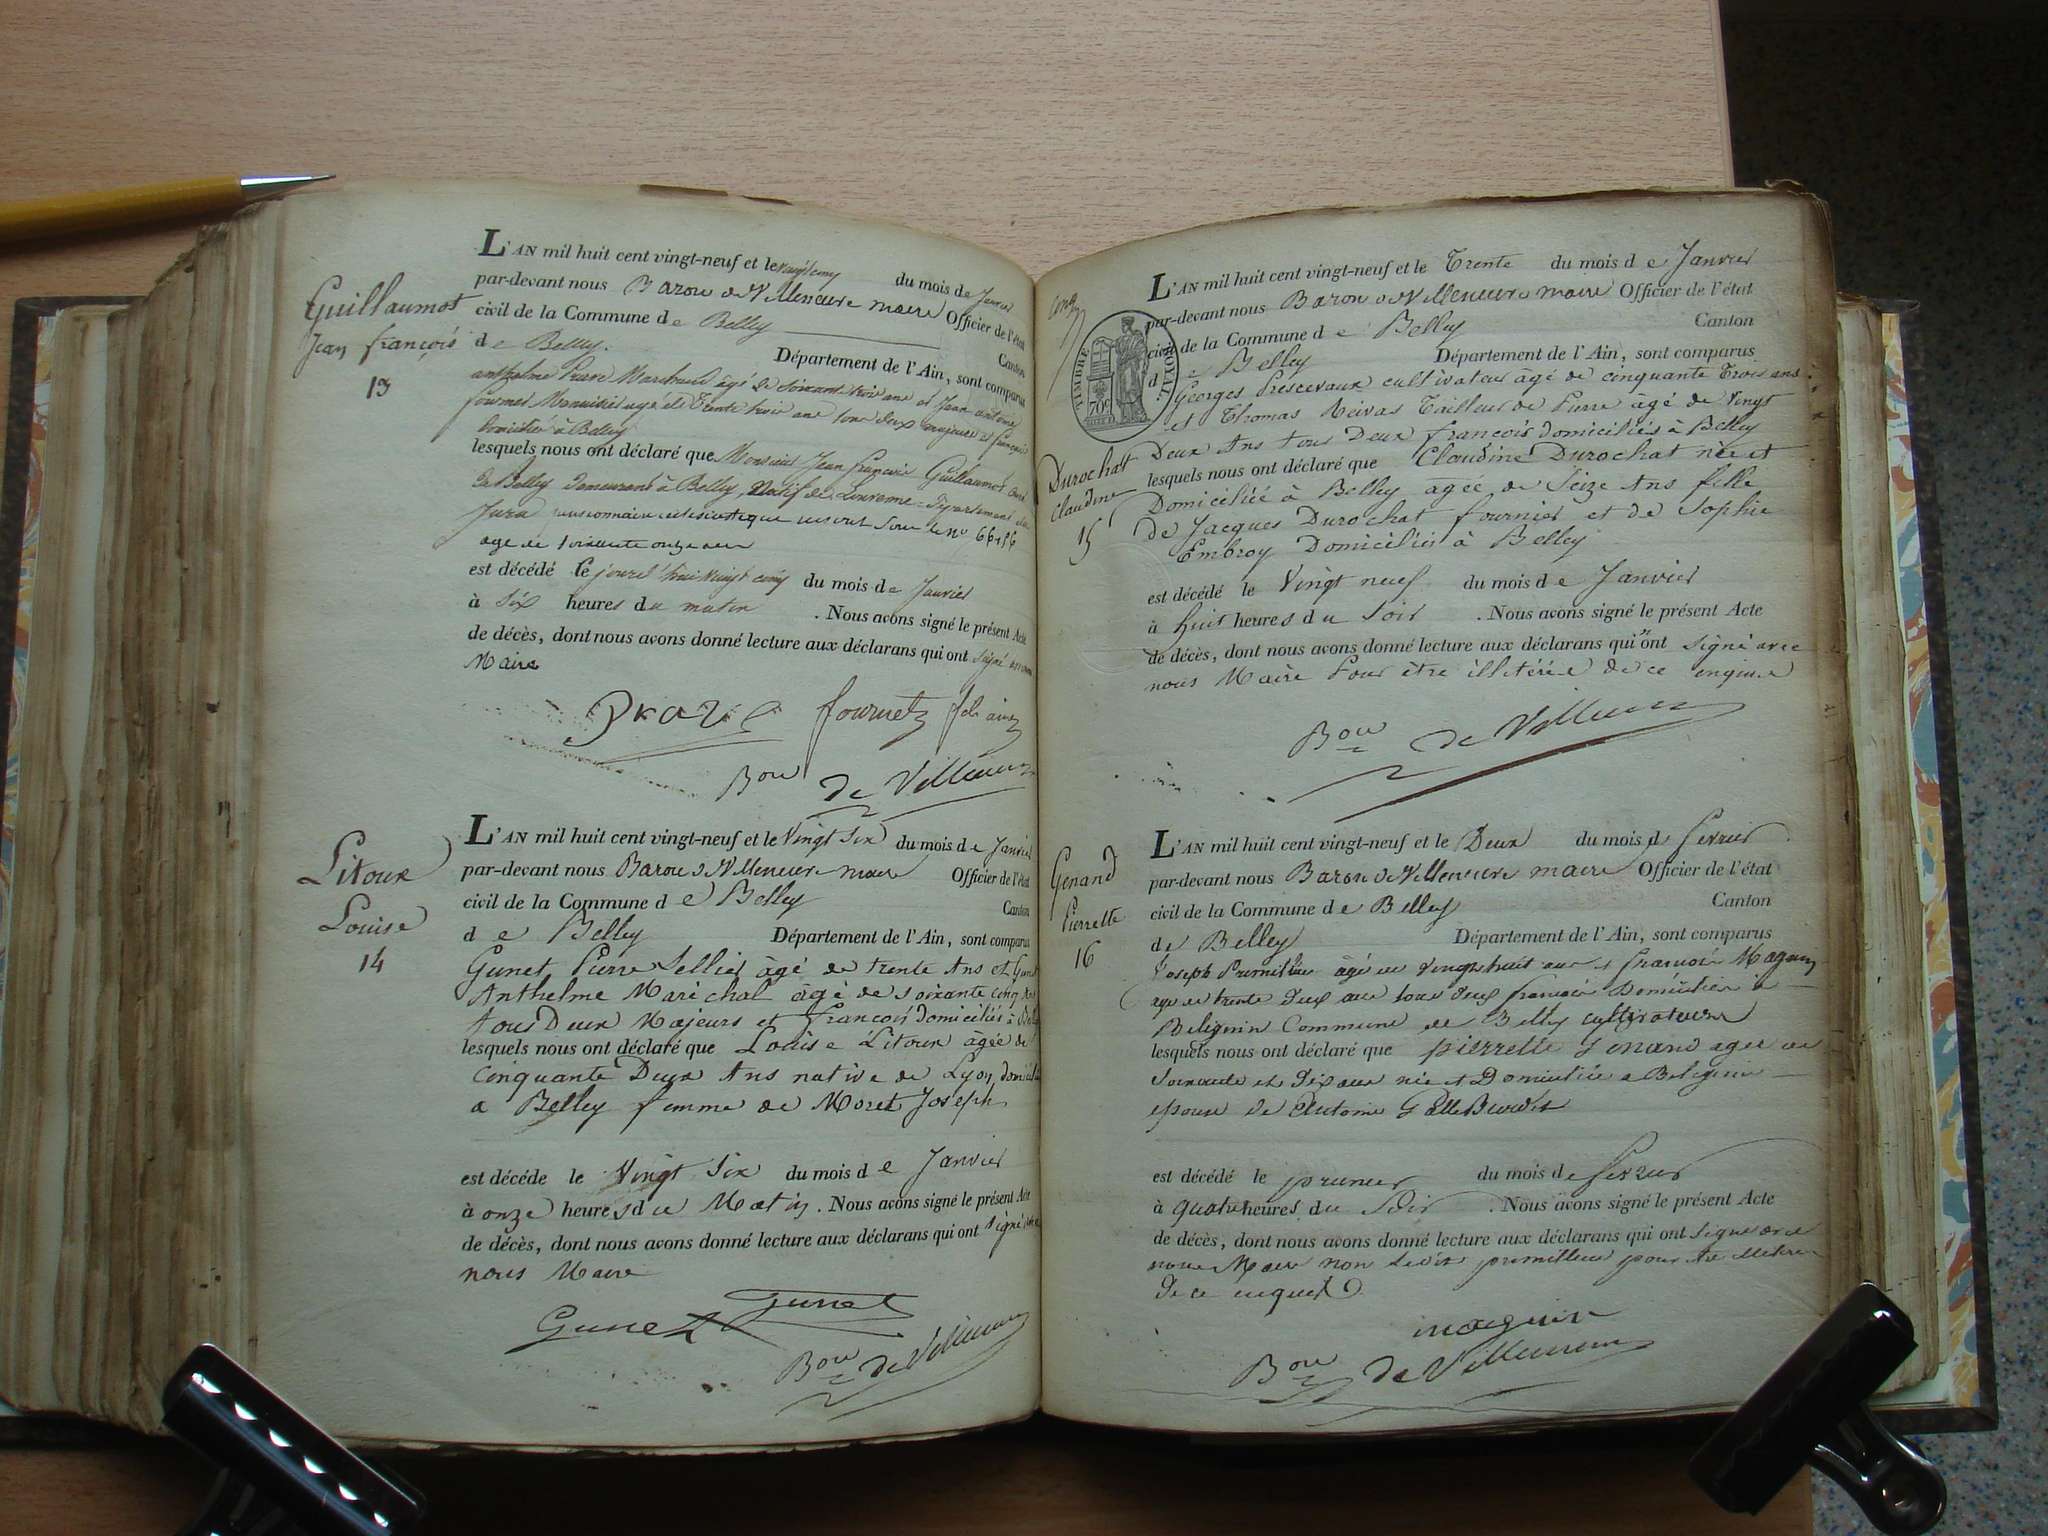 Guillaumot
Jean françois
13
L'AN mil huit cent vingt-neuf et le vingt cinq du mois de Janvier
par-devant nous Baron de Villeneuve maire Officier de l'état
civil de la Commune de Belley Canton
de Belley. Département de l'Ain, sont comparus
anthelme Marchand âgé de soixante trois ans et Jean antoine
fournet Menuisier agé de Trente trois ans tous deux majeurs et françois
domiciliés à Belley
lesquels nous ont déclaré que Monsieur Jean françois Guillaumot Curé
de Belley demeurant à Belley, Natif de Département du
Jura pensionnaire ecclésiastique inscrit sous le no
age de soixante onze ans
est décédé le jourd'hui vingt cinq du mois de Janvier
à six heures du matin . Nous avons signé le présent Acte
de décès, dont nous avons donné lecture aux déclarans qui ont signé avec nous
Maire
fournet fils ainé
Bon de Villeneuve
Litoux
Louise
14
L'AN mil huit cent vingt-neuf et le Vingt Six du mois de Janvier
par-devant nous Baron de Villeneuve maire Officier de l'état
civil de la Commune de Belley Canton
de Belley Département de l'Ain, sont comparus
Gunet Pierre Sellier âgé de trente Ans et Gunet
Anthelme Maréchal âgé de soixante cinq Ans
tous Deux Majeurs et françois domiciliés à Belley
lesquels nous ont déclaré que Louise Litoux âgée de
Cinquante Deux Ans native de Lyon domiciliée
a Belley femme de Moret Joseph
est décéde le Vingt Six du mois de Janvier
à onze heures du Matin . Nous avons signé le présent Acte
de décès, dont nous avons donné lecture aux déclarans qui ont signé avec
nous Maire
Gunet Gunet
Bon de Villeneuve
TIMBRE ROYAL
70c
Durochat
Claudine
15
L'AN mil huit cent vingt-neuf et le Trente du mois de Janvier
par-devant nous Baron de Villeneuve maire Officier de l'état
civil de la Commune de Belley Canton
de Belley Département de l'Ain, sont comparus
Georges Prescevaux cultivateur âgé de cinquante Trois ans
et Thomas Reivas Tailleur de Pierre âgé de Vingt
Deux Ans tous Deux françois domiciliés à Belley
lesquels nous ont déclaré que Claudine Durochat née et
Domiciliée à Belley agée de Seize Ans fille
de Jacques Durochat fournier et de Sophie
Embroy Domiciliés à Belley
est décédé le Vingt neuf du mois de Janvier
à huit heures du Soir . Nous avons signé le présent Acte
de décès, dont nous avons donné lecture aux déclarans qui n'ont signé avec
nous Maire Pour être illitérée de ce enquis
Bon de Villeneuve
Genand
Pierrette
16
L'AN mil huit cent vingt-neuf et le Deux du mois de fevrier
par-devant nous Baron de Villeneuve maire Officier de l'état
civil de la Commune de Belley Canton
de Belley Département de l'Ain, sont comparus
Joseph âgé de vingt huit ans et françois Magnin
age de trente deux ans tous deux françois Domiciliés à
Belignin Commune de Belley cultivateurs
lesquels nous ont déclaré que pierrette Genand agée de
soixante et dix ans née et Domiciliée a Belignin
epouse de Antoine
est décédé le premier du mois de fevrier
à quatre heures du Soir . Nous avons signé le présent Acte
de décès, dont nous avons donné lecture aux déclarans qui ont signé avec
nous Maire non ledit pour être illitéré
de ce enquis
magnin
Bon de Villeneuve